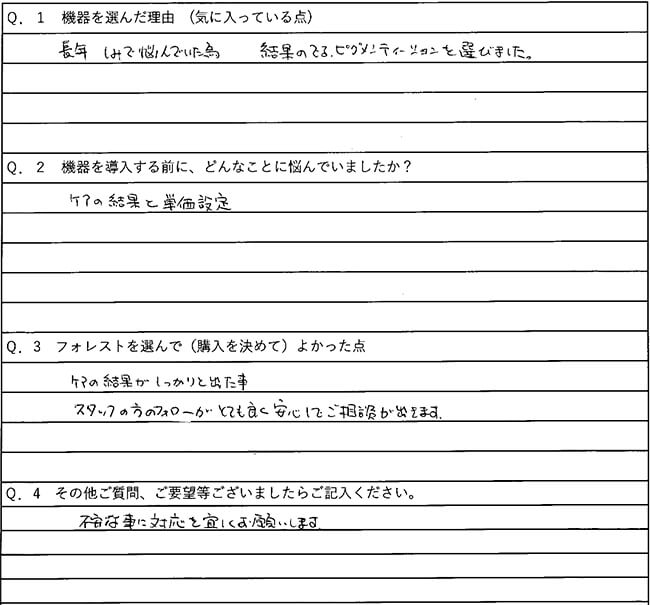 Q. 1 機器を選んだ理由 (気に入っている点)
長年 しみで悩んでいた為 結果のでる、ピグメンティーションを選びました。
Q. 2 機器を導入する前に、どんなことに悩んでいましたか？
ケアの結果と単価設定
Q. 3 フォレストを選んで（購入を決めて）よかった点
ケアの結果がしっかりと出た事
スタッフの方のフォローがとても良く安心してご相談が出来ます。
Q. 4 その他ご質問、ご要望等ございましたらご記入ください。
な事に対応を宜しくお願いします